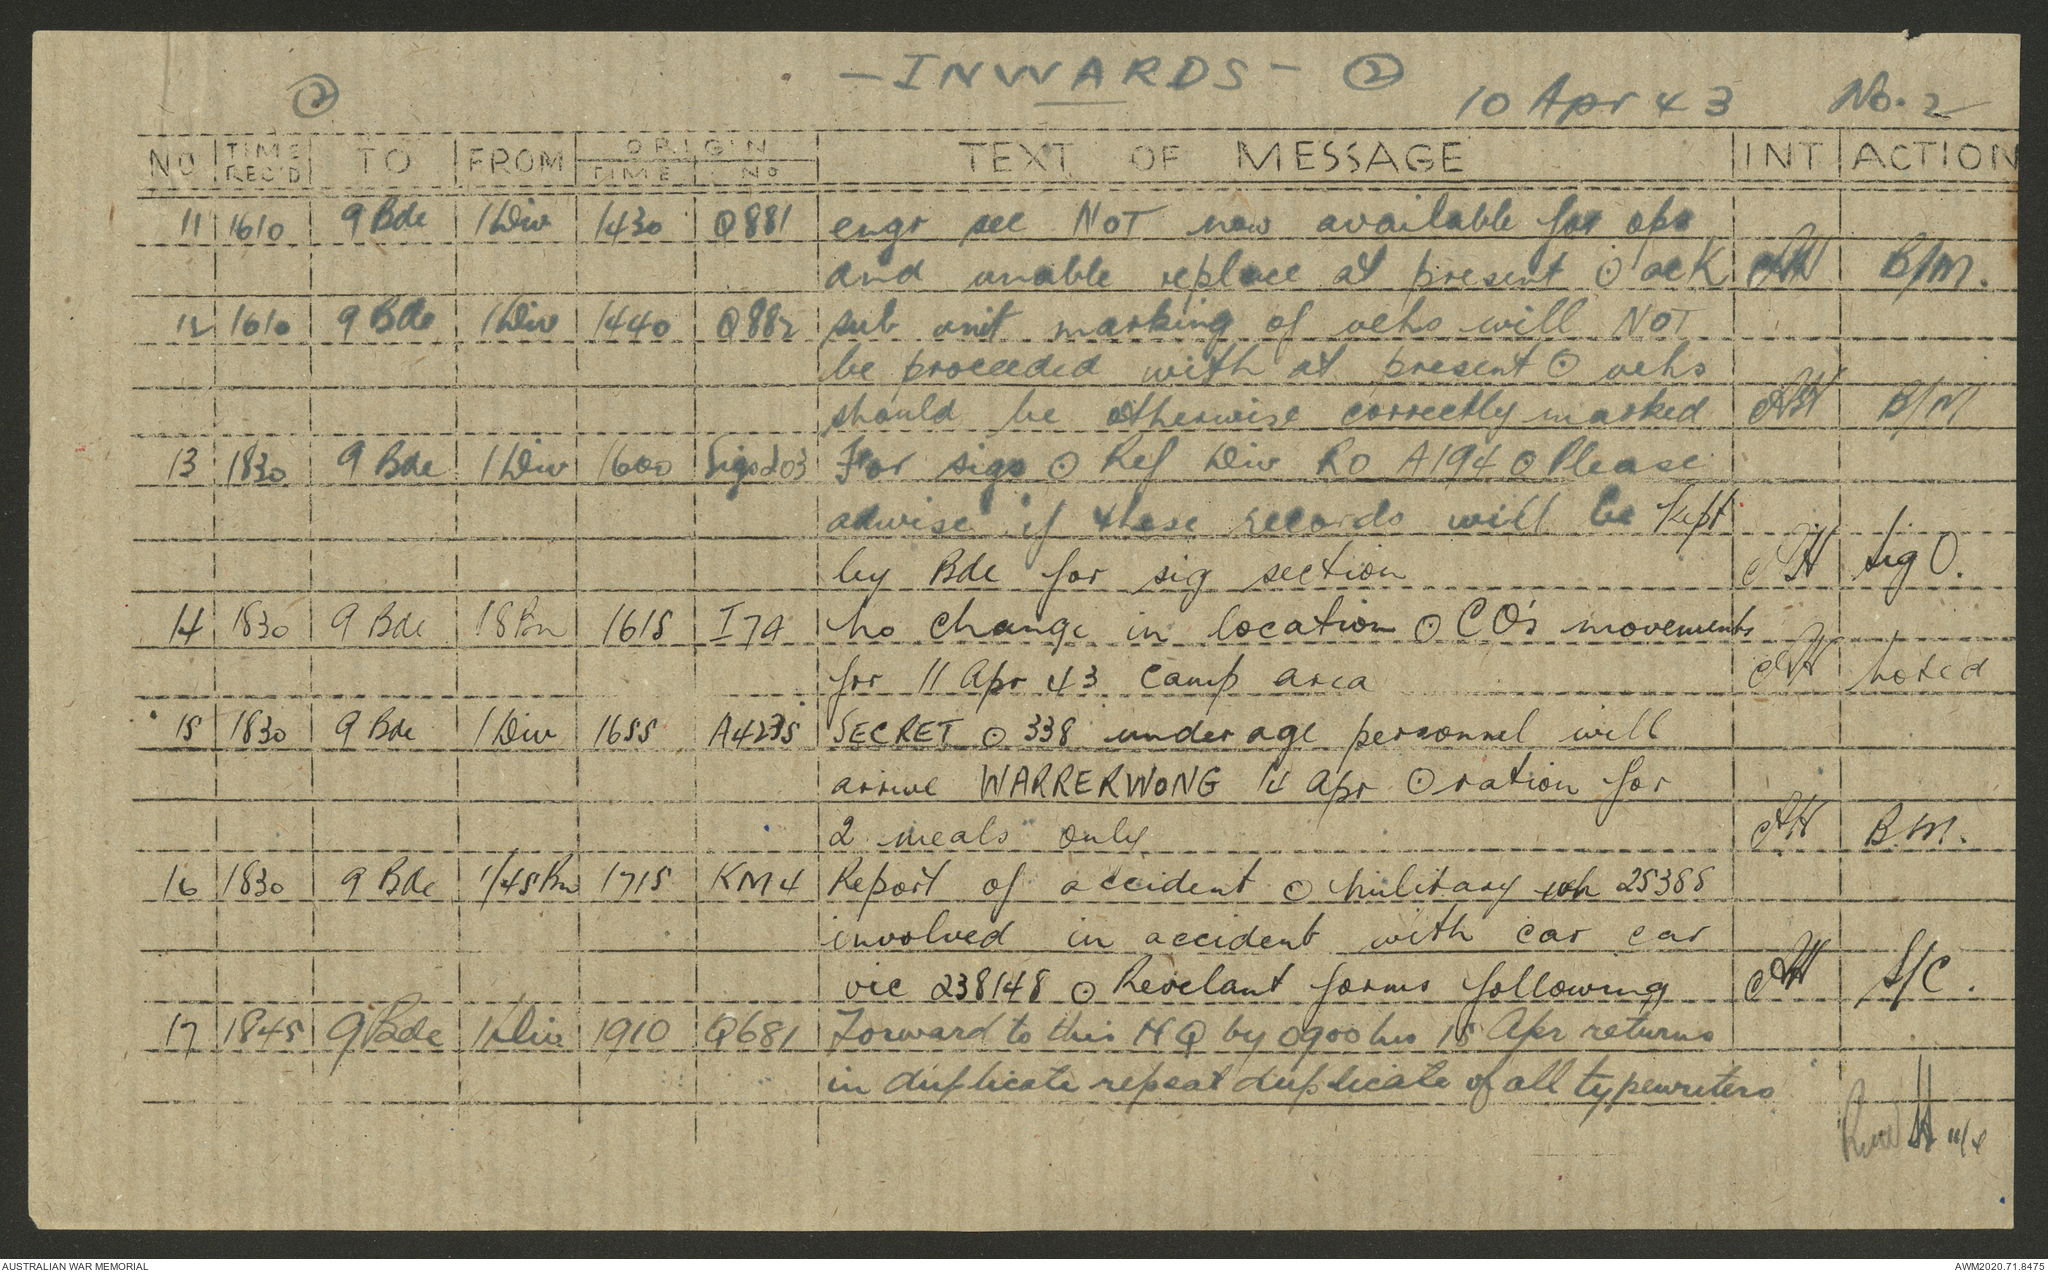 ②
- INWARDS - ②
10 Apr 43 No. 2
NO TIME REC'D TO FROM ORIGIN TIME NO TEXT OF MESSAGE INT ACTION
11 1610 9 Bde 1 Div 1430 Q881 engr sec NOT now available for ops
and unable replace at present ⊙ ack B/M.
12 1610 9 Bde 1 Div 1440 Q882 sub unit marking of vehs will NOT
be proceeded with at present ⊙ vehs
should be otherwise correctly marked B/M
13 1830 9 Bde 1 Div 1600 Sigs 203 For sigs ⊙ Ref Div RO A194 ⊙ Please
advise if these records will be kept
by Bde for sig section Sig O.
14 1830 9 Bde 18 Bn 1615 I74 No change in location ⊙ CO's movements
for 11 Apr 43 camp area noted
15 1830 9 Bde 1 Div 1655 A4235 SECRET ⊙ 338 under age personnel will
arrive WARRERWONG 14 Apr ⊙ ration for
2 meals only B.M.
16 1830 9 Bde 1/45 Bn 1715 KM4 Report of accident ⊙ Military veh 25388
involved in accident with car car
vic 238148 ⊙ Revelant forms following S/C.
17 1845 9 Bde 1 Div 1910 Q681 Forward to this HQ by 0900 hrs 15 Apr returns
in duplicate repeat duplicate of all typewriters
11/4
AUSTRALIAN WAR MEMORIAL AWM2020.71.8475